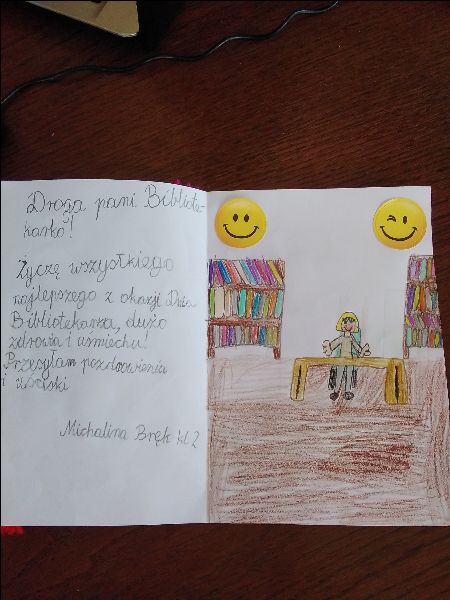 Droga pani Bibliote-
karko!
Życzę wszystkiego
najlepszego z okazji Dnia
Bibliotekarza, dużo
zdrowia i uśmiechu!
Przesyłam pozdrowienia
i uściski
Michalina Bręk kl 2